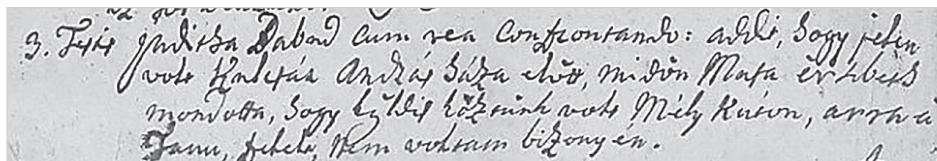 3. Testis Juditha Dabod cum rea Confrontando: addit, hogy jelen
volt András háza előtt, midőn Maga
mondotta, hogy gyűlés köztünk volt Mély Kúton, arra a
Tanu, felele, Nem voltam bizony én.